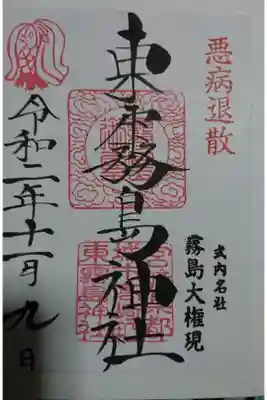 悪病退散
式内名社
霧島大権現
東霧島神社
東霧島神社
令和二年十一月九日